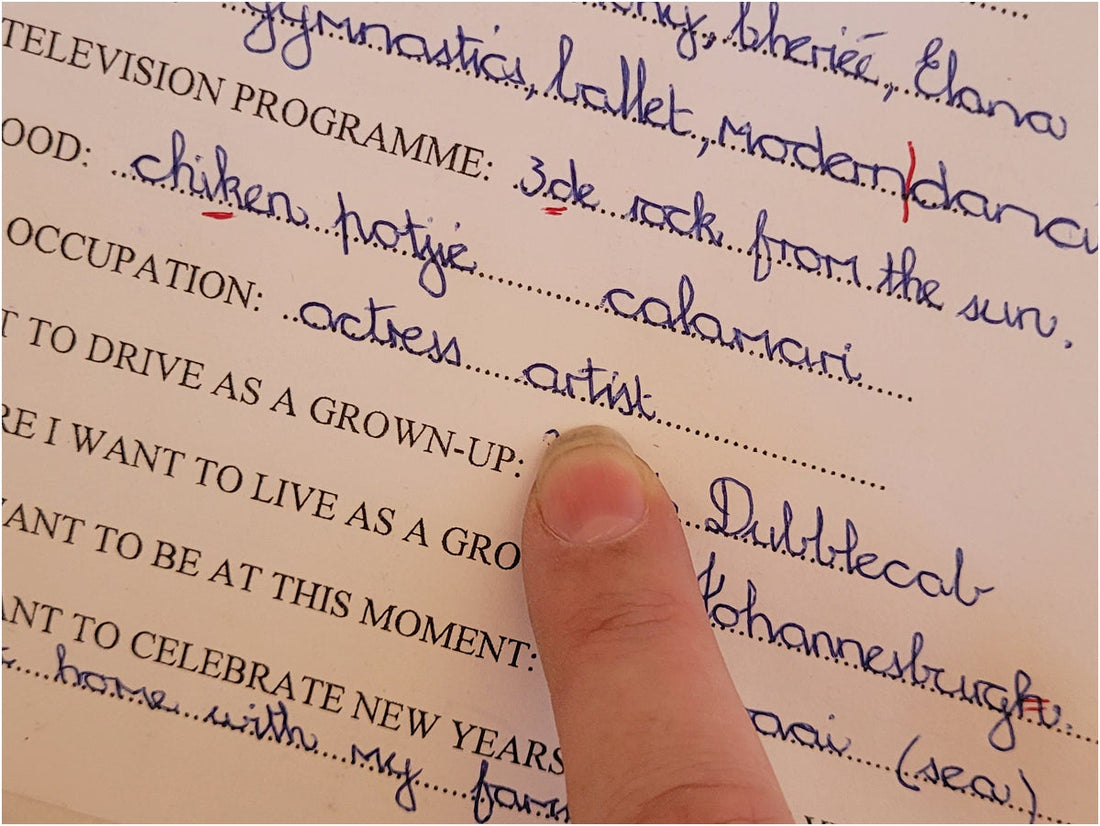 ny, bherieé, Elana
gymnastics, ballet, Modern danc
TELEVISION PROGRAMME: 3de rock from the sun.
OOD: chiken potjié calamari
OCCUPATION: actress artist
T TO DRIVE AS A GROWN-UP: Dubblecab
RE I WANT TO LIVE AS A GRO Johannesbrugh.
ANT TO BE AT THIS MOMENT: aai (sea)
ANT TO CELEBRATE NEW YEARS
home with my fam